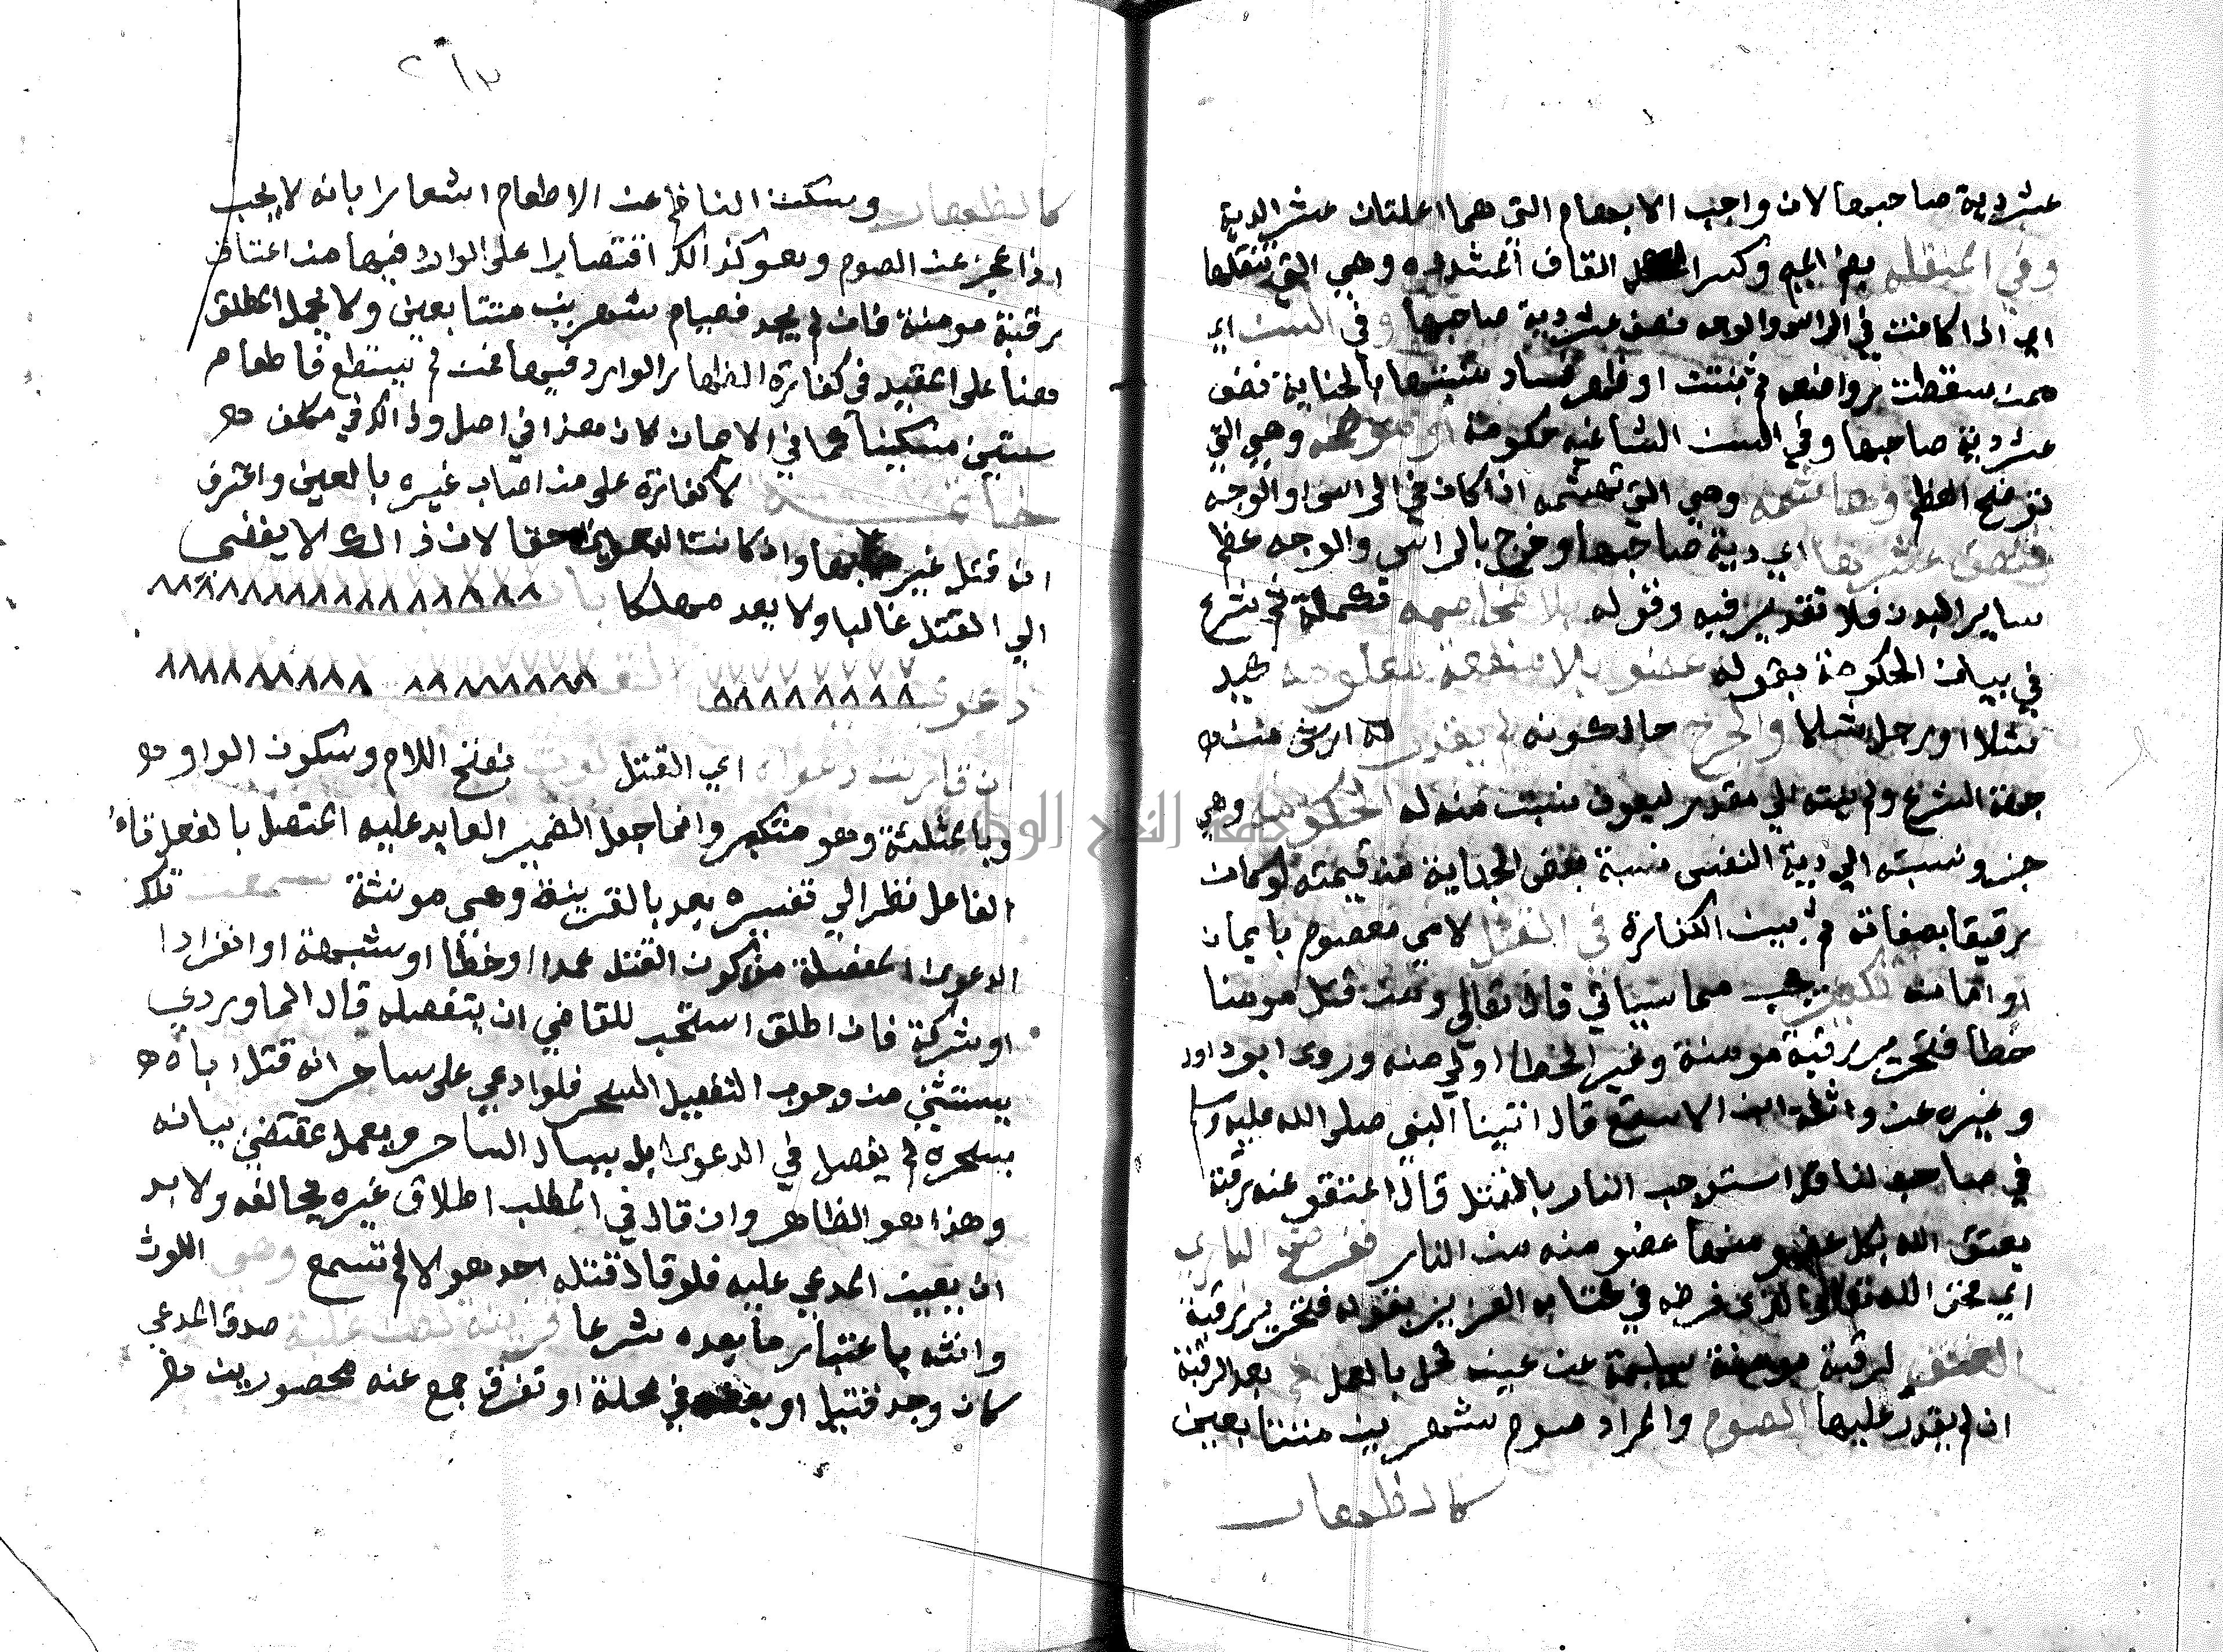 عشر دية صاحبها لان واجب الابهام التي هما اعلتان عشر الدية
وفي المنقله بضم الميم وكسر القاف المشدده وهي التي تنقلها
اي اذا كانت في الراس والوجه نصف عشر دية صاحبها وفي السن اي
ممن سقطت رواضعه ثم نبتت او ظهر فساد منبتها بالجناية نصف
عشر دية صاحبها وفي السن الشاغيه حكومة او موضحه وهي التي
توضح العظم وهاشمه وهي التي تهشمه اذا كان في الراس او الوجه
فنصف عشرها اي دية صاحبها وخرج بالراس والوجه عظم
ساير البدن فلا تقدير فيه وقوله بلا مخاصمه تكملة ثم شرع
في بيان الحكومة بقوله عضو بلا منفعة معلومه كيد
شلا او رجل شلا والجرح حال كونه لم يقدر له ارش من
جهة الشرع ولم نسبته الي مقدر ليعرف منه له الحكومة وهي
جزء نسبته الي دية النفس نسبة نقص الجناية من قيمته لو كان
رقيقا بصفاته ثم بين الكفارة في القتل لادمي معصوم بايمان
او امان تكفير يجب مما سياتي قال تعالي ومن قتل مومنا
خطا فتحرير رقبة مومنة وغير الخطا اولي منه وروى ابو داود
وغيره عن واثلة ابن الاسقع قال اتينا النبي صلى الله عليه وسلم
في صاحب لنا قد استوجب النار بالقتل قال اعتقو عنه رقبة
يعتق الله بكل عضو منها عضو منه من النار ففرض الباري
اي حق الله تعالي الذي فرضه في كتابه العزيز بقوله فتحرير رقبة
العتق لرقبة مومنة سليمة عن عيب مخل بالعمل ثم بعد الرقبة
ان لم يقدر عليها الصوم والمراد صوم شهرين متتابعين
كالظهار
٢٦٣
كالظهار وسكت الناظم عن الاطعام اشعارا بانه لا يجب
اذا عجز عن الصوم وهو كذالك اقتصارا على الوارد فيها من اعتاق
رقبة مومنة فان لم يجد فصيام شهرين متتابعين ولا يحمل المطلق
هنا على المقيد في كفارة الظهار الوارد فيها فمن لم يستطع فاطعام
ستين مسكينا كما في الايمان لان هذا في اصل وذالك في
خاتمة لا كفارة على من اصاب غيره بالعين واعترف
ان قتل غير بها وان كانت العين حقا لان ذالك لا يفضي
الي القتل غالبا ولا يعد مهلكا باب
دعوى
ن قارنت دعواه اي القتل لوث بفتح اللام وسكون الواو
وبالمثلثة وهو منكر وانما جعل الضمير العايد عليه المتصل بالفعل تاء
الفاعل نظرا الي تفسيره بعد بالقرينة وهي مونثة سمعت تلك
الدعوى المفصلة من كون القتل عمدا او خطا او شبهة او انفرادا
او شركة فان اطلق استحب للقاضي ان يتفصله قال الماوردي
يستثني من وجوب التفصيل السحر فلو ادعي على ساحر انه قتل اباه
بسحره لم يفصل في الدعوى بل يسال الساحر ويعمل بمقتضي بيانه
وهذا هو الظاهر وان قال في المطلب اطلاق غيره يخالفه ولا بد
ان يعين المدعي عليه فلو قال قتله احد هولا لم تسمع وهي اللوث
وانثه باعتبار ما بعده شرعا قرينة تدل علية صدق المدعي
كان وجد قتيل او بعضه في محلة او تفرق جمع عنه محصورين
جامعة النجاح الوطنية